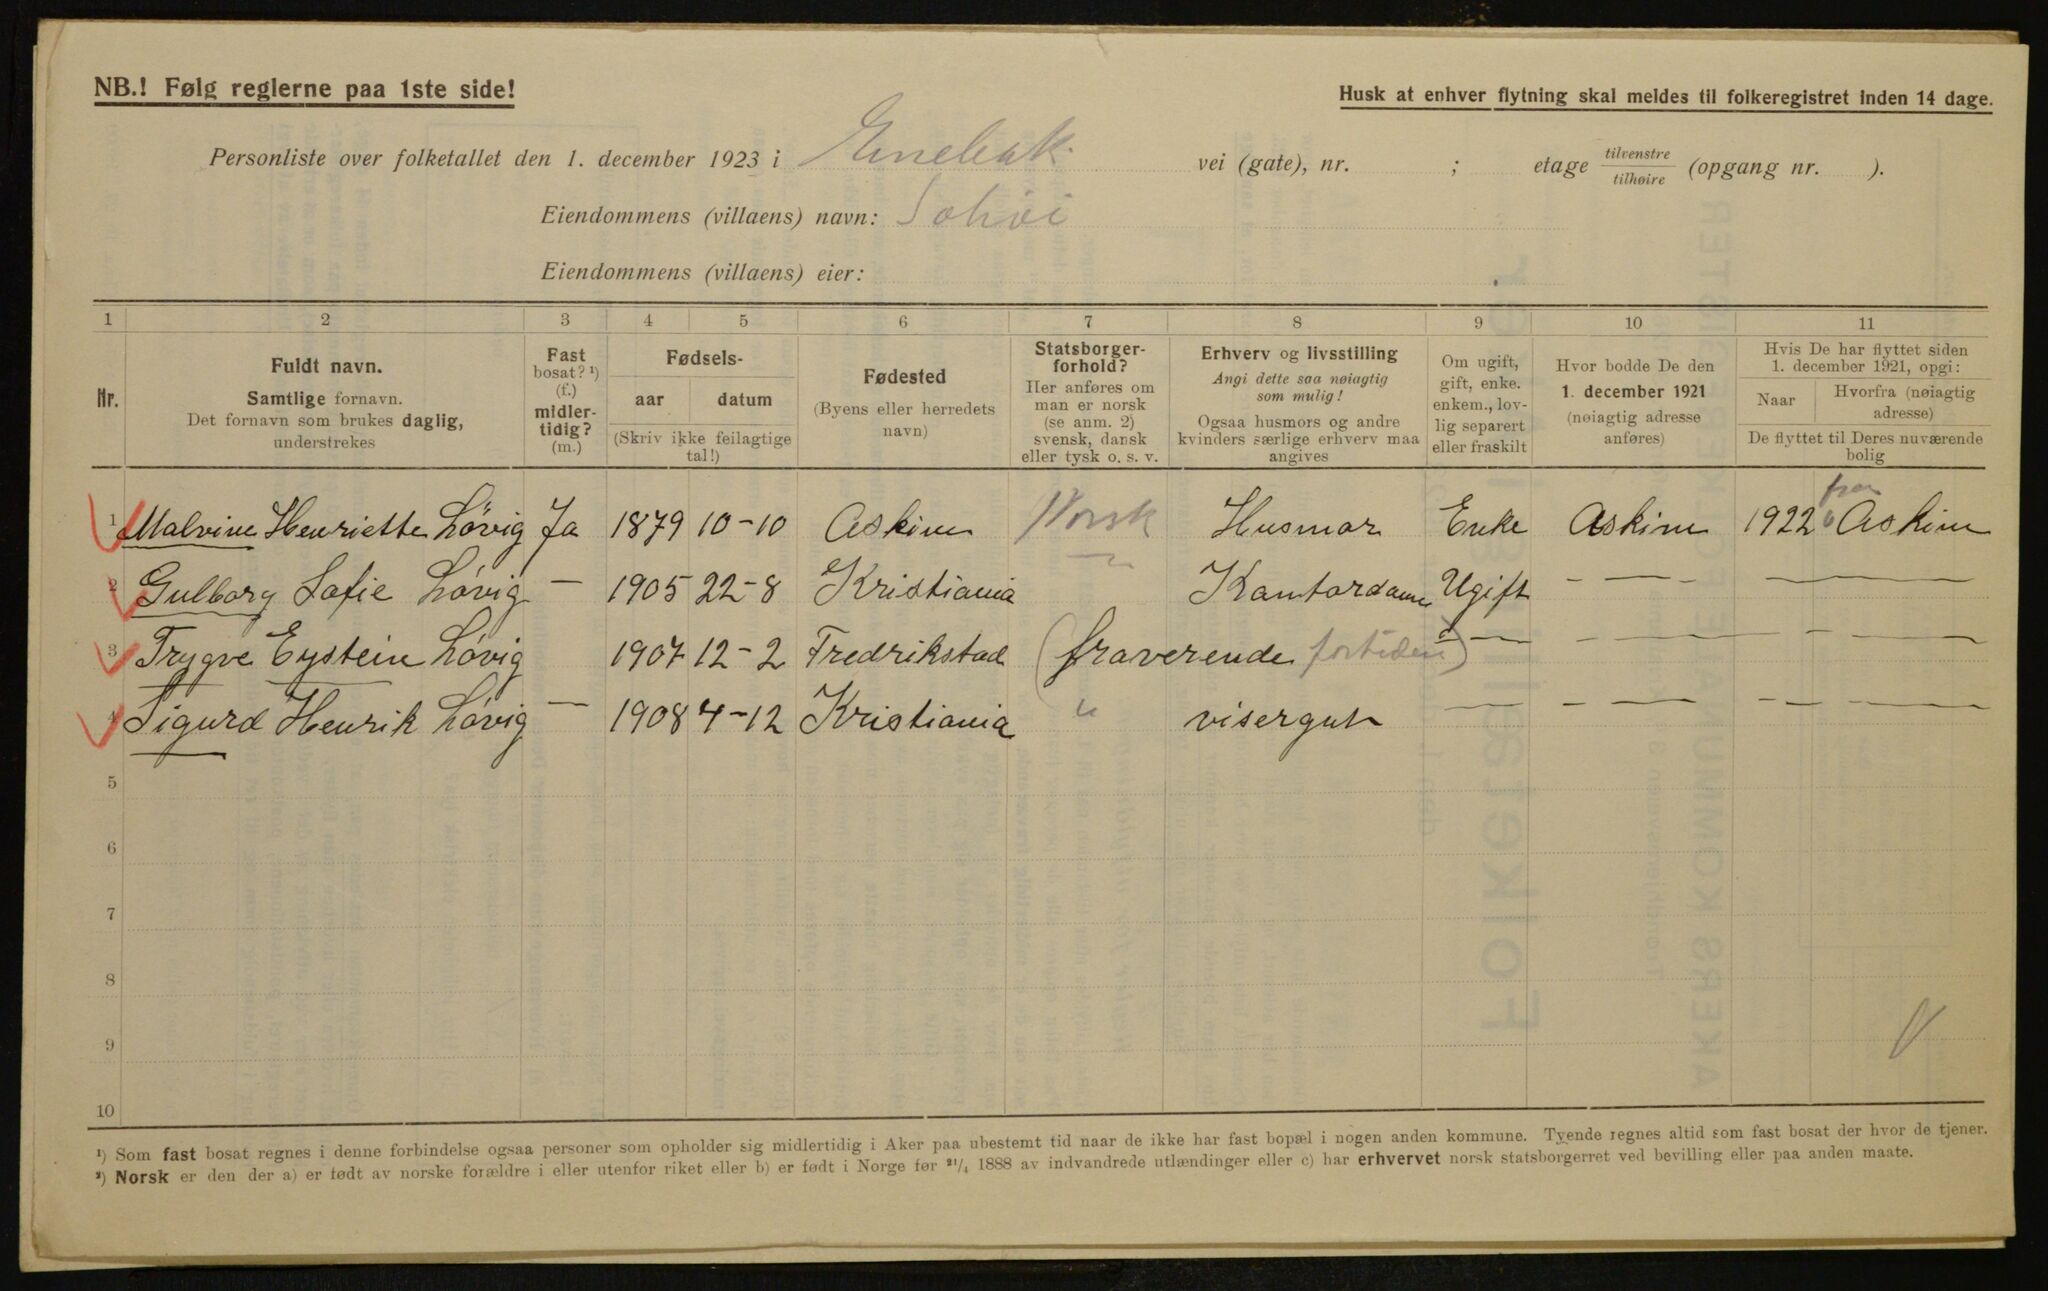 NB.! Følg reglerne paa 1ste side!
Husk at enhver flytning skal meldes til folkeregistret inden 14 dage.
Personliste over folketallet den 1. december 1923 i Enebak vei (gate), nr. ; etage tilvenstre tilhøire (opgang nr. ).
Eiendommens (villaens) navn: Solhöi
Eiendommens (villaens) eier:
1 2 3 4 5 6 7 8 9 10 11
Nr.
Fuldt navn.
Samtlige fornavn.
Det fornavn som brukes daglig,
understrekes
Fast
bosat? ¹)
(f.)
midler-
tidig?
(m.)
Fødsels-
aar datum
(Skriv ikke feilagtige
tal!)
Fødested
(Byens eller herredets
navn)
Statsborger-
forhold?
Her anføres om
man er norsk
(se anm. 2)
svensk, dansk
eller tysk o. s. v.
Erhverv og livsstilling
Angi dette saa nøiagtig
som mulig!
Ogsaa husmors og andre
kvinders særlige erhverv maa
angives
Om ugift,
gift, enke.
enkem., lov-
lig separert
eller fraskilt
Hvor bodde De den
1. december 1921
(nøiagtig adresse
anføres)
Hvis De har flyttet siden
1. december 1921, opgi:
Naar
Hvorfra (nøiagtig
adresse)
De flyttet til Deres nuværende
bolig
fra
1 Malvine Henriette Lövig Ja 1879 10-10 Askim Norsk Husmor Enke Askim 1922 Askim
2 Gulborg Sofie Lövig — 1905 22-8 Kristiania — Kontordame Ugift - — — - —
3 Trygve Eystein Lövig 1907 12-2 Fredrikstad (fraverende fortiden) - — - — — — - — — —
4 Sigurd Henrik Lövig — 1908 4-12 Kristiania " visergut — — — — — - — - —
5
6
7
8
9
10
¹) Som fast bosat regnes i denne forbindelse ogsaa personer som opholder sig midlertidig i Aker paa ubestemt tid naar de ikke har fast bopæl i nogen anden kommune. Tyende regnes altid som fast bosat der hvor de tjener.
²) Norsk er den der a) er født av norske forældre i eller utenfor riket eller b) er født i Norge før ²¹/₄ 1888 av indvandrede utlændinger eller c) har erhvervet norsk statsborgerret ved bevilling eller paa anden maate.